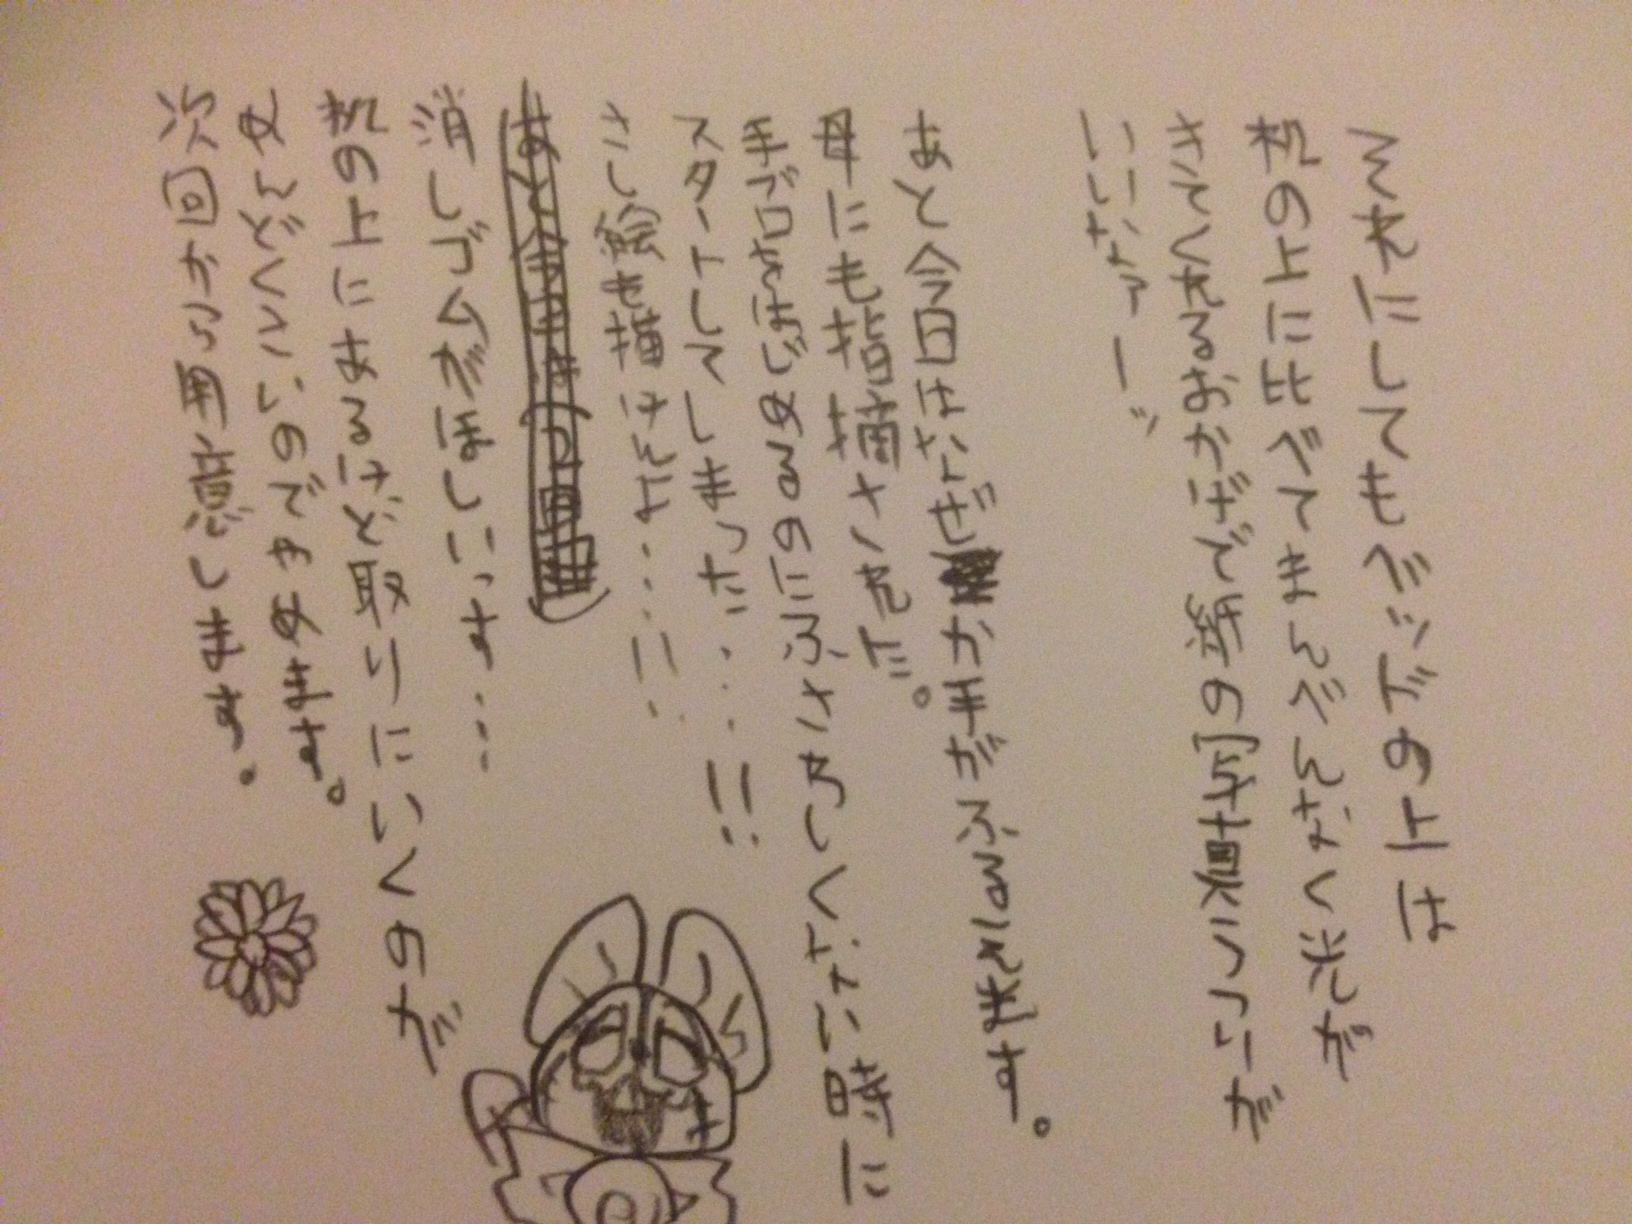 それにしてもベッドの上は
机の上に比べてまんべんなく光が
きてくれるおかげで紙の写真うつりが
いいなァーッ
あと今日はなぜか手がふるえます。
母にも指摘された。
手ブロをはじめるのにふさわしくない時に
スタートしてしまった・・・!!
さし絵も描けんよ・・・・!!
消しゴムがほしいっす・・・
机の上にあるけど取りにいくのが
めんどくさいのでやめます。
次回から用意します。